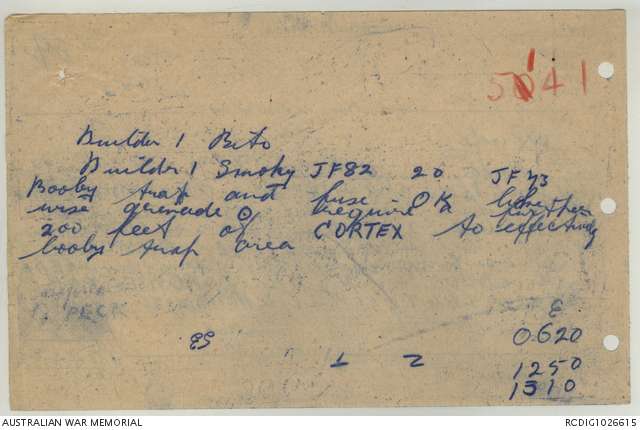 5141
Builder 1 Beto
Builder 1 Smoky JF82 20 JF73
Booby trap and fuse OK like
wise grenade O require a further
200 feet of CORTEX to effectively
booby trap area
PECK
E
0620
1 2
1250
1310
AUSTRALIAN WAR MEMORIAL
RCDIG1026615